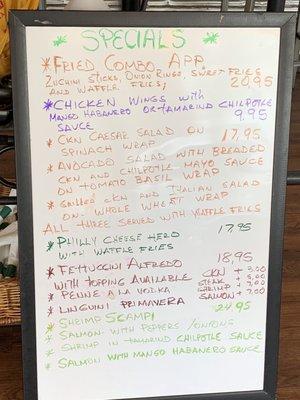 * SPECIALS *
* FRIED COMBO APP
ZUCHINI STICKS, ONION RINGS, SWEET FRIES
AND WAFFLE FRIES; 20,95
* CHICKEN WINGS WITH
MANGO HABANERO OR TAMARIND CHILPOTLE
SAUCE 9.95
* CKN CAESAR SALAD ON 17,95
SPINACH WRAP
* AVOCADO SALAD WITH BREADED
CKN AND CHILPOTLE MAYO SAUCE
ON TOMATO BASIL WRAP
* GRILLED CKN AND ITALIAN SALAD
ON WHOLE WHEAT WRAP
ALL THREE SERVED WITH WAFFLE FRIES
* PHILLY CHEESE HERO 17,95
WITH WAFFLE FRIES
* FETTUCCINI ALFREDO 18,95
WITH TOPPING AVAILABLE CKN + 3,00
* PENNE A LA VODKA STEAK + 5,00
* LINGUINI PRIMAVERA SHRIMP + 7,00
SALMON + 7,00
* SHRIMP SCAMPI 24,95
* SALMON WITH PEPPERS / ONIONS
* SHRIMP IN TAMARIND CHILPOTLE SAUCE
* SALMON WITH MANGO HABANERO SAUCE